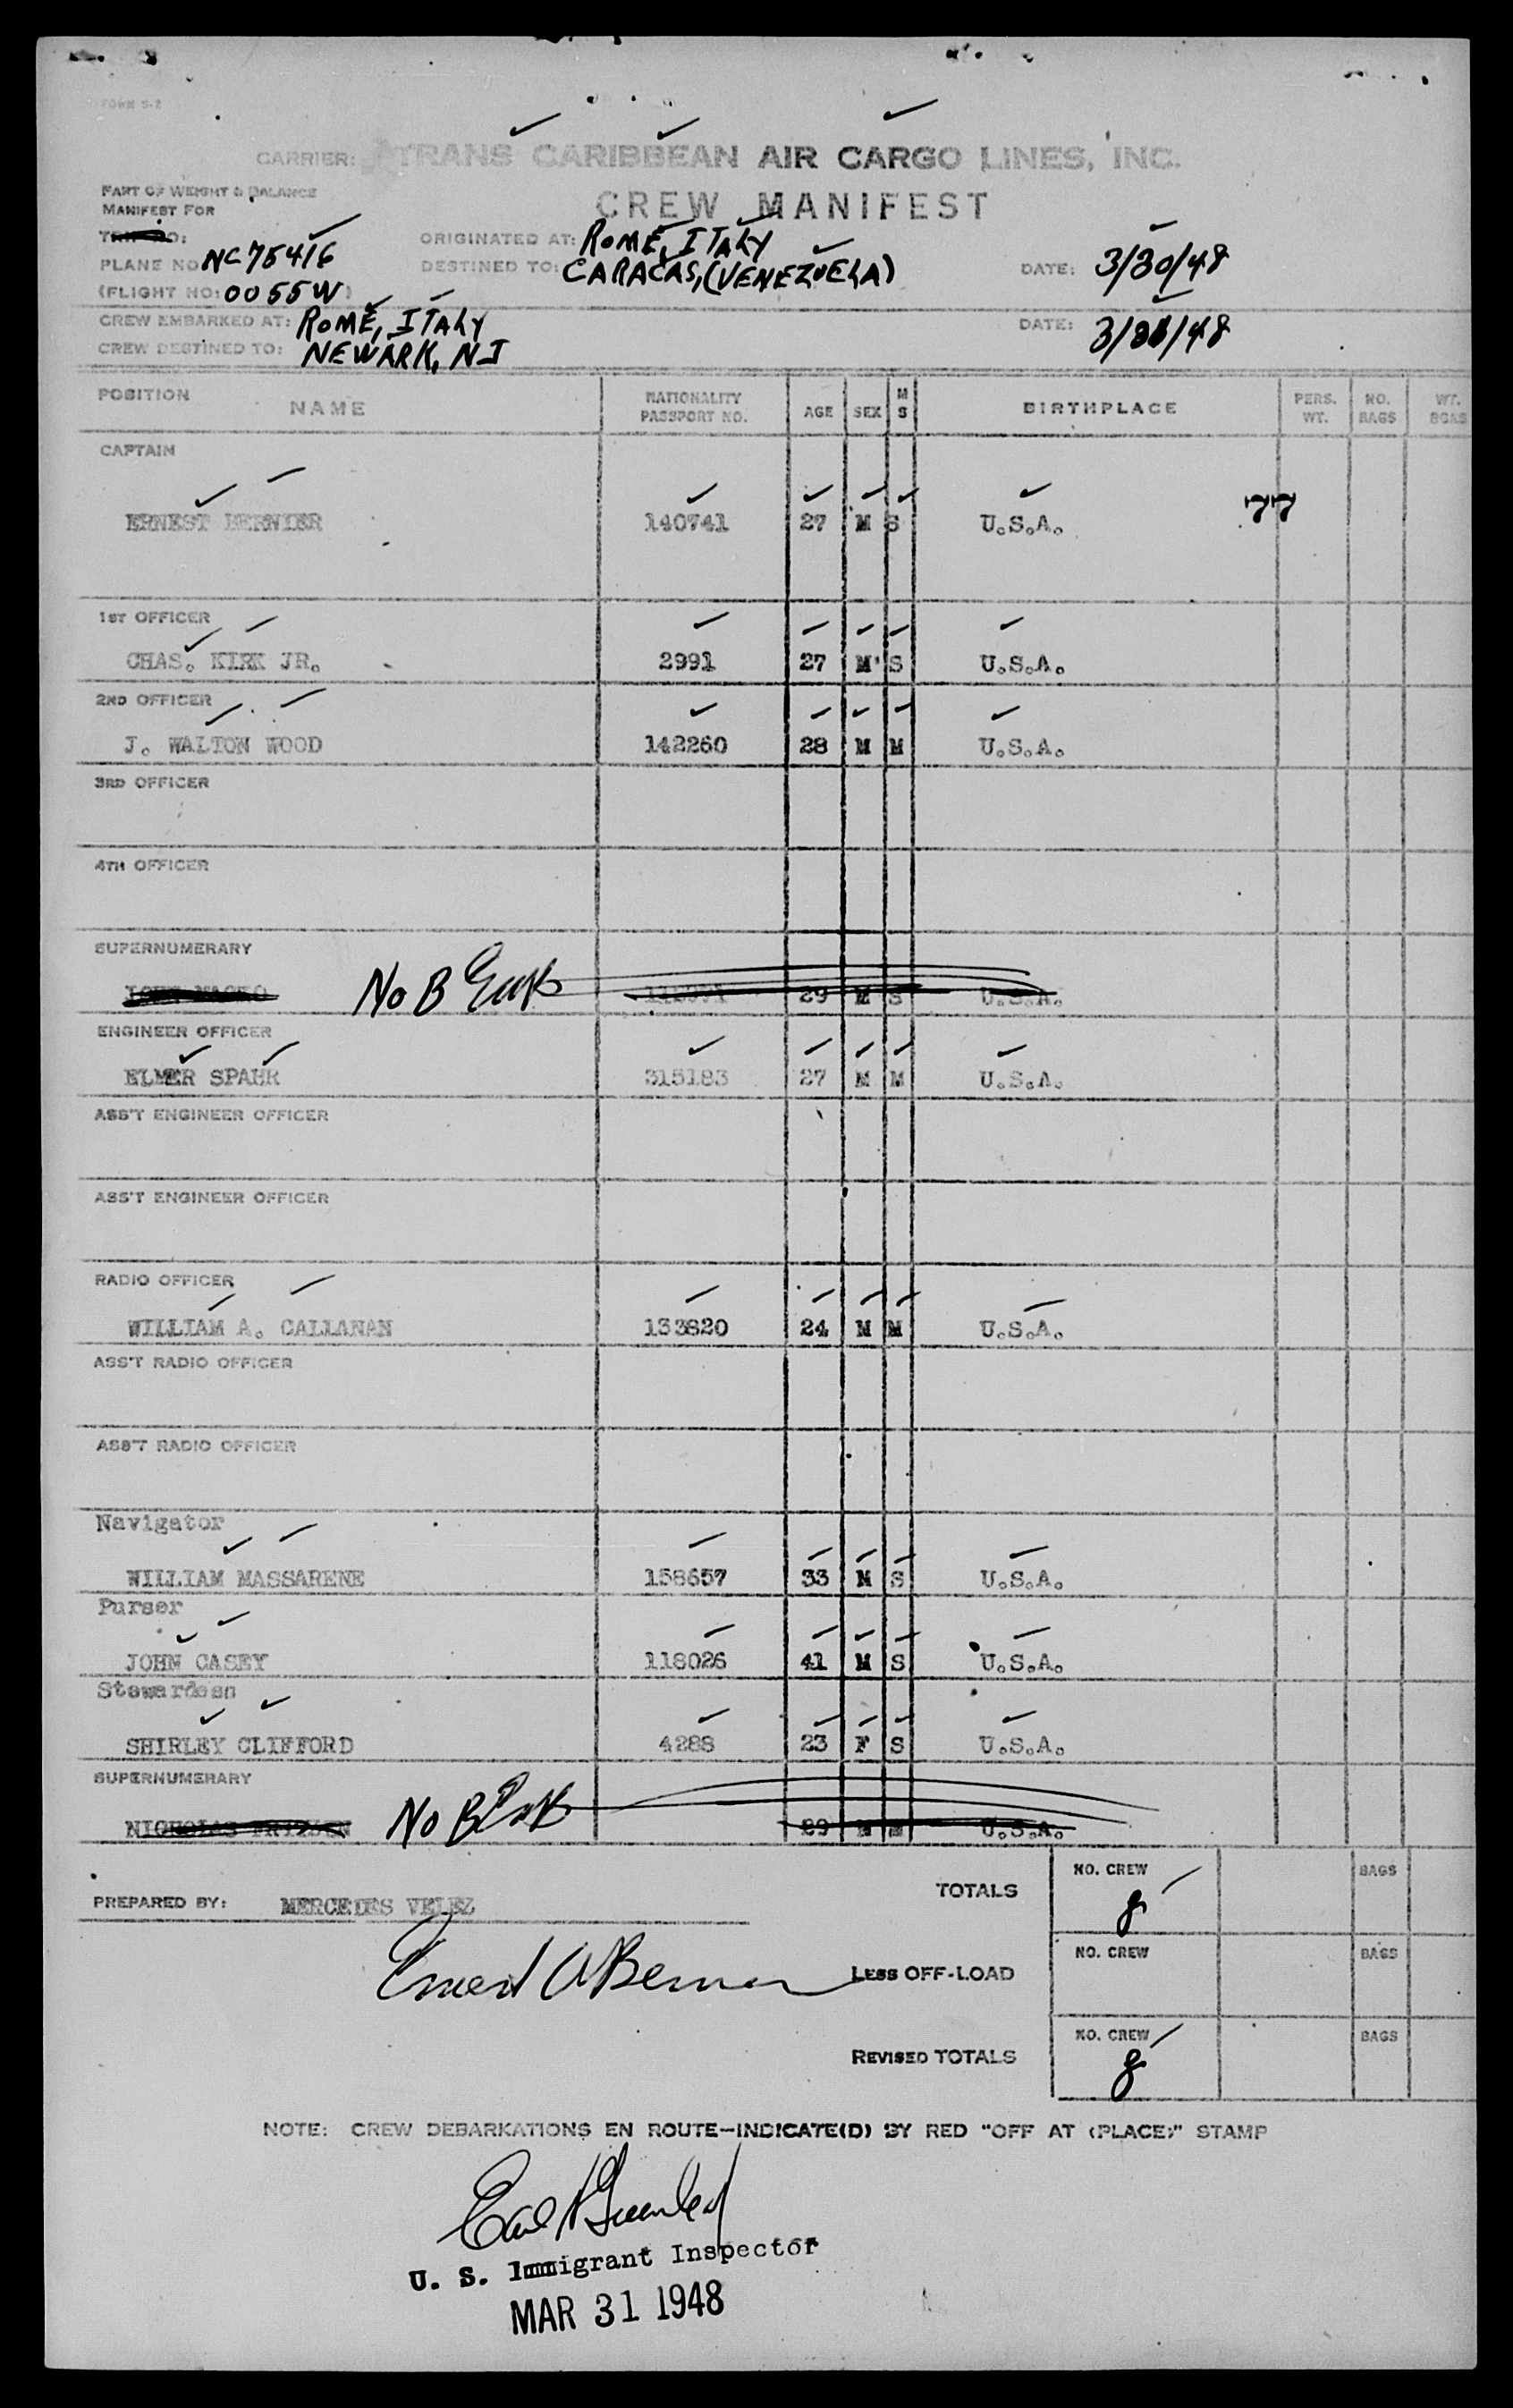 FORM S-2
CARRIER: TRANS CARIBBEAN AIR CARGO LINES, INC.
PART OF WEIGHT & BALANCE
MANIFEST FOR
CREW MANIFEST
TRIP NO:
ORIGINATED AT: ROME, ITALY
PLANE NO: NC75416
DESTINED TO: CARACAS, (VENEZUELA)
DATE: 3/30/48
(FLIGHT NO: 0055W)
CREW EMBARKED AT: ROME, ITALY
DATE: 3/30/48
CREW DESTINED TO: NEWARK, NJ
POSITION NAME NATIONALITY PASSPORT NO. AGE SEX M S BIRTHPLACE PERS. WT. NO. BAGS WT. BGAS
CAPTAIN
77
ERNEST BERNIER 140741 27 M S U.S.A.
1ST OFFICER
CHAS. KIRK JR. 2991 27 M S U.S.A.
2ND OFFICER
J. WALTON WOOD 142260 28 M M U.S.A.
3RD OFFICER
4TH OFFICER
SUPERNUMERARY
No B 29 M S U.S.A.
ENGINEER OFFICER
ELMER SPAHR 315183 27 M M U.S.A.
ASS'T ENGINEER OFFICER
ASS'T ENGINEER OFFICER
RADIO OFFICER
WILLIAM A. CALLAHAN 133820 24 M M U.S.A.
ASS'T RADIO OFFICER
ASS'T RADIO OFFICER
Navigator
WILLIAM MASSARENE 158657 33 M S U.S.A.
Purser
JOHN CASEY 118026 41 M S U.S.A.
Stewardess
SHIRLEY CLIFFORD 4288 23 F S U.S.A.
SUPERNUMERARY
NICHOLAS No B 29 M M U.S.A.
TOTALS NO. CREW 8 BAGS
PREPARED BY: MERCEDES VELEZ
Ernest A Bernier
LESS OFF-LOAD NO. CREW BAGS
REVISED TOTALS NO. CREW 8 BAGS
NOTE: CREW DEBARKATIONS EN ROUTE—INDICATE(D) BY RED "OFF AT (PLACE)" STAMP
U. S. Immigrant Inspector
MAR 31 1948